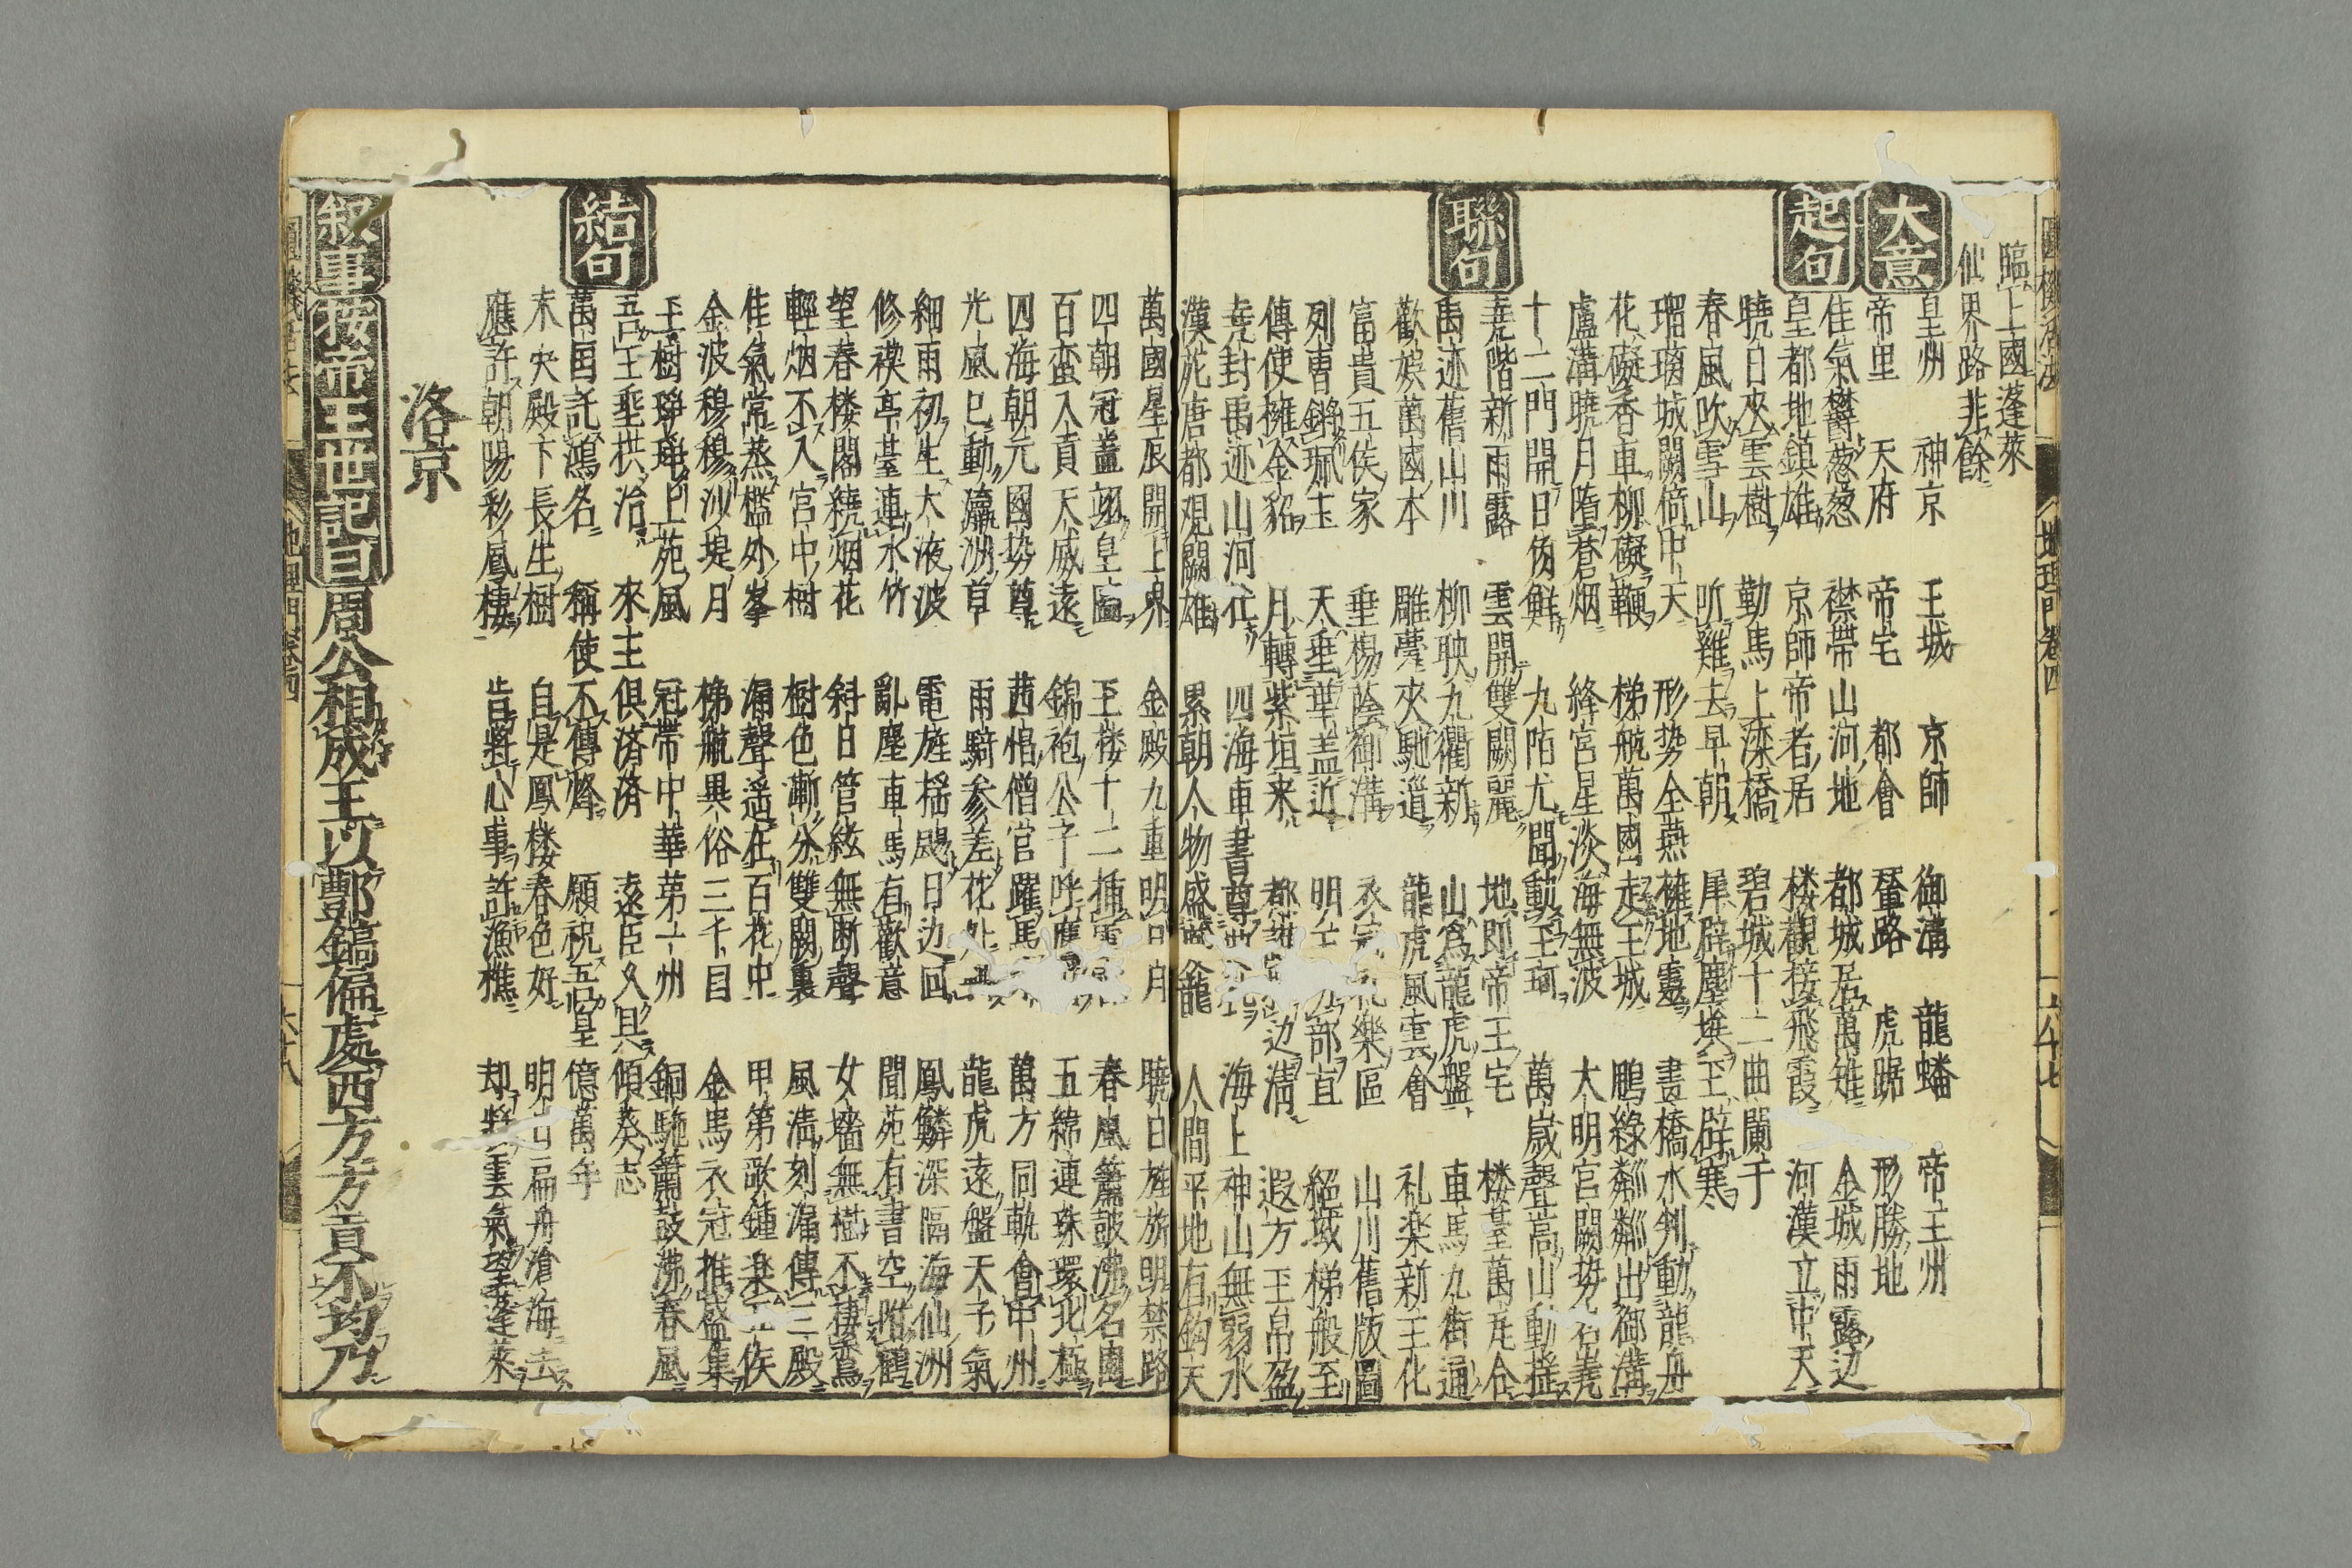 臨上國蓬萊
仙界路非餘
大意
皇州 神京 王城 京師 御溝 龍蟠 帝王州
帝里 天府 帝宅 都會 輦路 虎踞 形勝地
起句
佳氣欝葱葱 襟帶山河地 都城居萬雉 金城雨露辺
皇都地鎮雄 京師帝者居 楼觀接飛霞 河漢立中天
曉日夾雲樹 勒馬上滦橋 碧城十二曲闌干
春風吹雪山 听雞去早朝 犀辟塵埃玉辟寒
瑠璃城闕倚中天 形势全燕擁地靈 畫橋水判動龍舟
花礙香車柳礙鞭 梯航萬國起王城 鵬綠粼粼出御溝
盧溝曉月墮蒼烟 絳宮星淡海無波 大明宮闕势名堯
十二門開日侚鮮 九陌尤聞動玉珂 萬嵗聲高山動揺
聯句
堯階新雨露 雲開雙闕麗 地即帝王宅 楼䑓萬尾合
禹迹舊山川 柳映九衢新 山為龍虎盤 車馬九街通
歡娱萬國本 雕甍夾馳道 龍虎風雲會 礼楽新王化
富貴五侯家 垂楊蔭御溝 樂區 山川舊版圖
列曹鏘珮玉 天垂華盖近 明 部直 絕域梯般至
傳使擁金貂 月轉紫垣来 都 辺清 遐方玉帛盈
堯封禹迹山河在 四海車書尊 海上神山無弱水
漢苑唐都覌闕雄 累朝人物盛 龍 人間平地有鈞天
萬國星辰開上界 金殿九重明 月 曉日旌旂明禁路
四朝冠盖翊皇圖 玉楼十二 春風簫皷沸名園
百蛮入貢天威遠 錦袍公子呼鷹 五綿連珠環北極
四海朝元國势尊 茜㡌僧官躍馬 萬方同軌會中州
光風已動瀛洲草 雨騎参差花外 龍虎遠盤天子氣
細雨初生大液波 電旌揺颺日辺回 鳳鱗深隔海仙洲
修禊亭臺連水竹 亂塵車馬有歡意 閬苑有書空附鶴
望春楼閣繞烟花 斜日管絃無断聲 女墻無樹不棲鸞
輕烟不入宮中樹 樹色漸分雙闕裏 風清刻漏傳三殿
佳氣常蒸檻外峯 漏聲遥在百花中 甲第歌鍾楽五侯
金波穆穆沙堤月 梯航異俗三千目 金馬衣冠推盛集
玉樹琤琤上苑風 冠帶中華第一州 銅馳簫鼓沸春風
結句
吾王垂拱治 來主俱済済 遠臣久具 傾葵志
萬国託鴻名 稱使不傳烽 願祝吾皇億萬年
未央殿下長生樹 自是鳳楼春色好 明 扁舟滄海去
應許朝陽彩鳳棲 肯將心事許漁樵 却 雲氣望蓬萊
洛京
叙事 按帝王世記曰 周公相成王以酆鎬偏處西方方貢不均乃
地理門卷四
六十七
地理門卷四
六十八